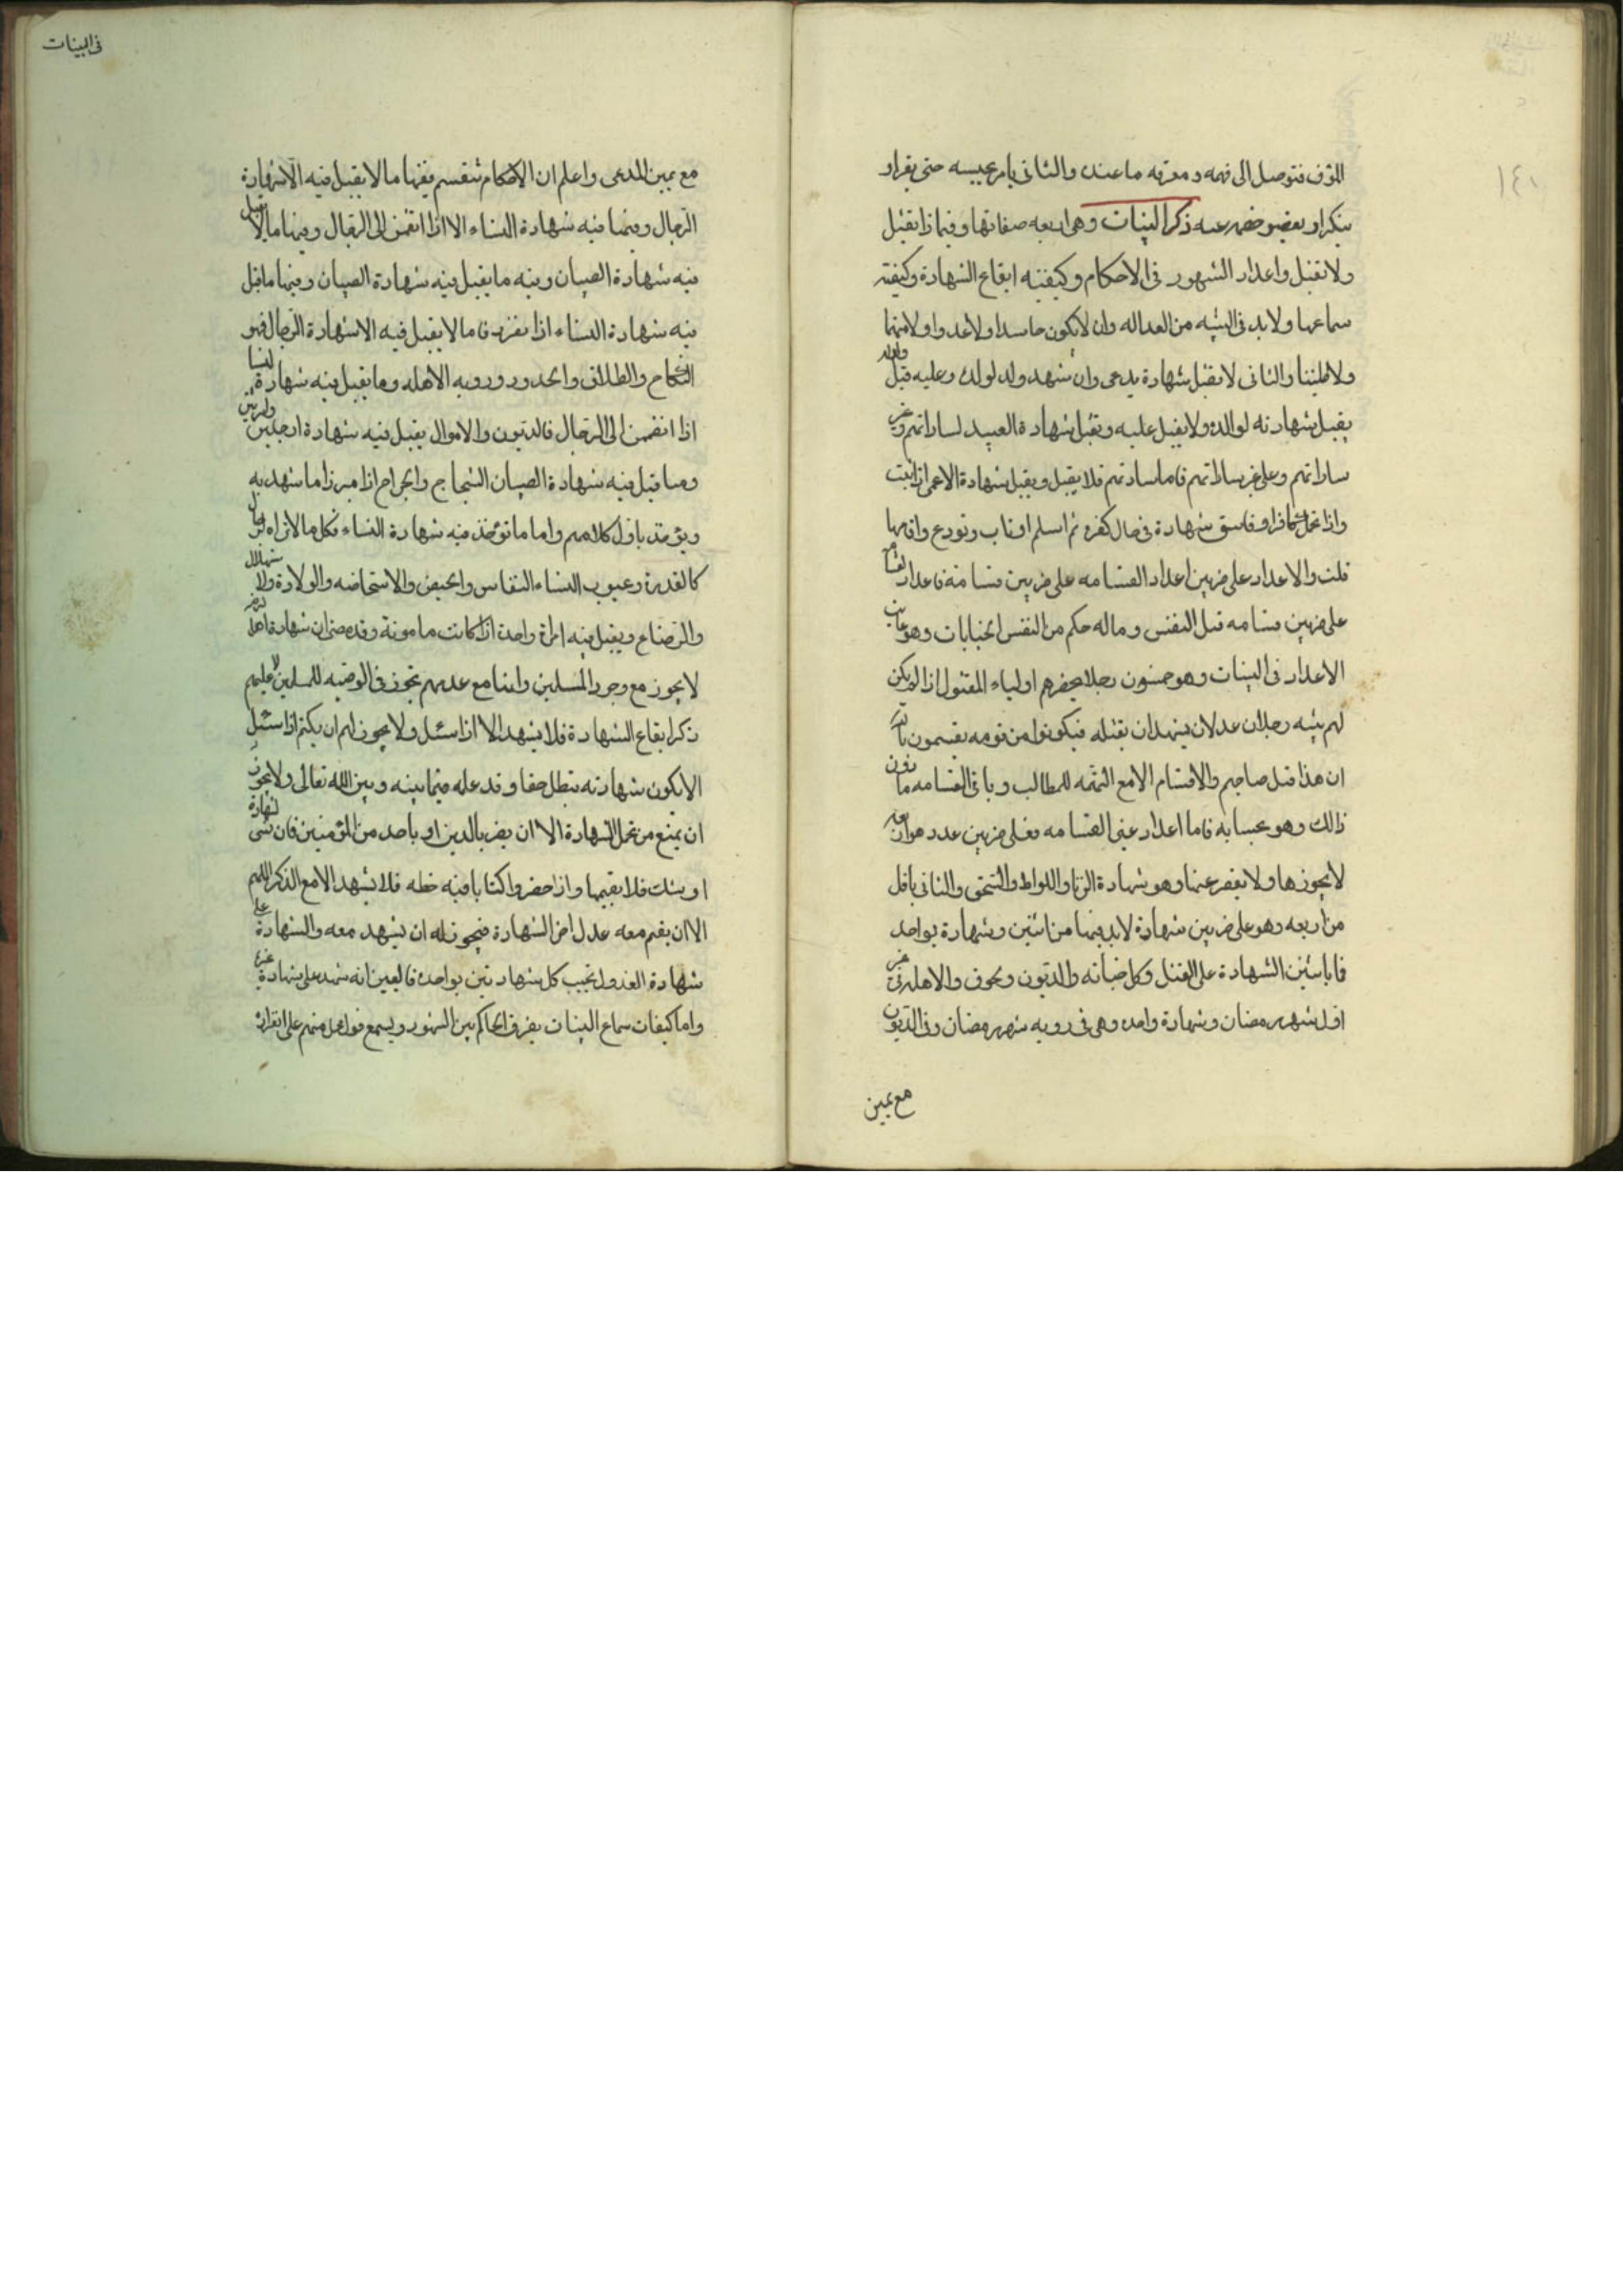 المؤف فتوصل الى فهمه و معرفه ما عنده والثانى يامر بحبسه حتى يقر او
ينكر او يعفو خصمه عنه ذكر البينات وهى اربعه صفاتها وفيما ذا تقبل
ولا تقبل واعداد الشهود فى الاحكام وكيفيته ايقاع الشهادة وكيفيته
سماعها ولا بد فى البينه من العداله وان لا يكون حاسدا ولا عدوا ولا متهما
ولا ظنينا والثانى لا يقبل شهادة بدعى وان شهد ولد لوالده وعليه قبل والوالد
يقبل شهادته لوالده ولا يقبل عليه وتقبل شهادة العبيد لساداتهم وغير
ساداتهم وعلى غير ساداتهم فاما ساداتهم فلا يقبل ويقبل شهادة الاعمى اذا اثبت
واذا تحمل كافر او فاسق شهادة فى حال كفره ثم اسلم او تاب وتورع واقامها
قلت والاعداد على ضربين اعداد القسامه على ضربين قسامة فاعداد القسامه
على ضربين قسامه قتل النفس وماله حكم من النفس الجنايات وهو غايت
الاعداد فى البينات وهو خمسون رجلا يحضرهم اولياء المقتول اذا لم يكن
لهم بينه رجلان عدلان يشهدان بقتله فيكونوا من قومه يقسمون بالله
ان هذا قتل صاحبهم والاقسام الامع التهمه للمطالب وباقى القسامه ما دون
ذالك وهو بحسابه فاما اعداد غير القسامه فعلى ضربين عدد هو اربعه
لا يجوزها ولا يقصر عنها وهو شهادة الزنا واللواط والسحق والثانى باقل
من اربعه وهو على ضربين شهادة لابد فيها من اثنين وشهادة بواحد
فاباثنين الشهادة على القتل وكل جنايه والديون وحقوق والاهله فى غير
اول شهر رمضان وشهادة واحده وهى فى رويه شهر رمضان وفى الديون
مع يمين
فى البينات
مع يمين المدعى واعلم ان الاحكام تنقسم فمنها ما لا يقبل فيه الا شهادة
الرجال ومنها فيه شهادة النساء الا اذا انضمن الى الرجال ومنها ما لا يقبل
فيه شهادة الصبيان وفيه ما يقبل فيه شهادة الصبيان ومنها ما قبل
فيه شهادة النساء اذا نفردن فاما لا يقبل فيه الا شهادة الرجال فهو
النكاح والطلاق والحدود ورويه الاهله وما يقبل فيه شهادة النسا
اذا انضممن الى الرجال فالديون والاموال يقبل فيه شهادة ارجلين وامرتين
وما قبل فيه شهادة الصبيان الشجاج والجراح اذا ميزوا ما شهد به
ويؤخذ باول كلامهم واما ما تؤخذ فيه شهادة النساء فكل ما لا تراه الرجال
كالعذرة وعيوب النساء النفاس والحيض والاستحاضه والولادة والاستهلال
والرضاع ويقبل فيه امراة واحدة اذا كانت مامونة وقد مضى ان شهادة اهل الذمه
لا يجوز مع وجود المسلمين وانما مع عدمهم تجوز فى الوصيه للمسلمين لا عليهم
ذكر ايقاع الشهادة فلا يشهد الا اذا سئل ولا يجوز لهم ان يكتم اذا سئل
الا يكون شهادته يبطل حقا وقد علمه فيما بينه وبين الله تعالى ولا يجوز
ان يمنع من تحمل الشهادة الا ان يضر بالدين او باحد من المؤمنين فان نسى الشهادة
او شك فلا يقيمها واذا حضروا كتابا فيه خطه فلا يشهد الا مع الذكر اللهم
الا ان يقيم معه عدل اخر الشهادة فيجوز له ان يشهد معه والشهادة على
شهادة العدول تجب كل شهادتين بواحده فاليعين انه شهد على شهادة غيره
واما كيفات سماع البينات يفرق الحاكم بين الشهود ويسمع قول كل منهم على انفراد